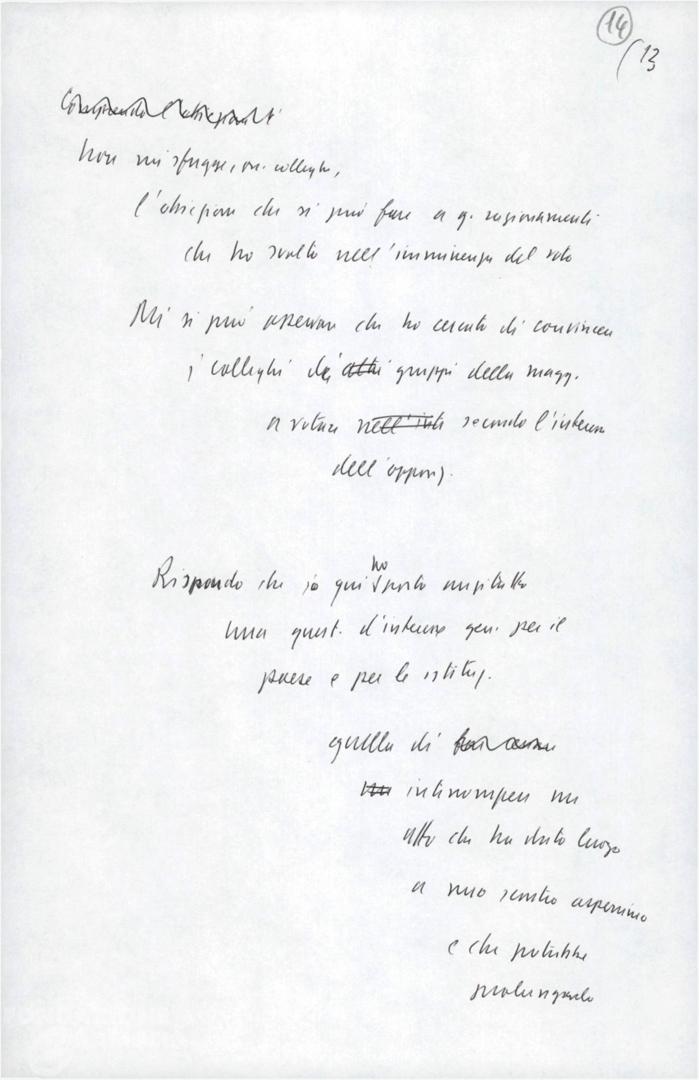 14
(13
Non mi sfugge, on. colleghi,
l'obiezione che si può fare a q. ragionamenti
che ho svolto nell'imminenza del voto
Mi si può osservare che ho cercato di convincere
i colleghi dei altri gruppi della magg.
a votare secondo l'interesse
dell'oppos.
Rispondo che io qui ho posto anzitutto
una quest. d'interesse gen. per il
paese e per le istituz.
quella di
un interrompere un
atto che ha dato luogo
a uno scontro asperrimo
e che potrebbe
prolungarlo